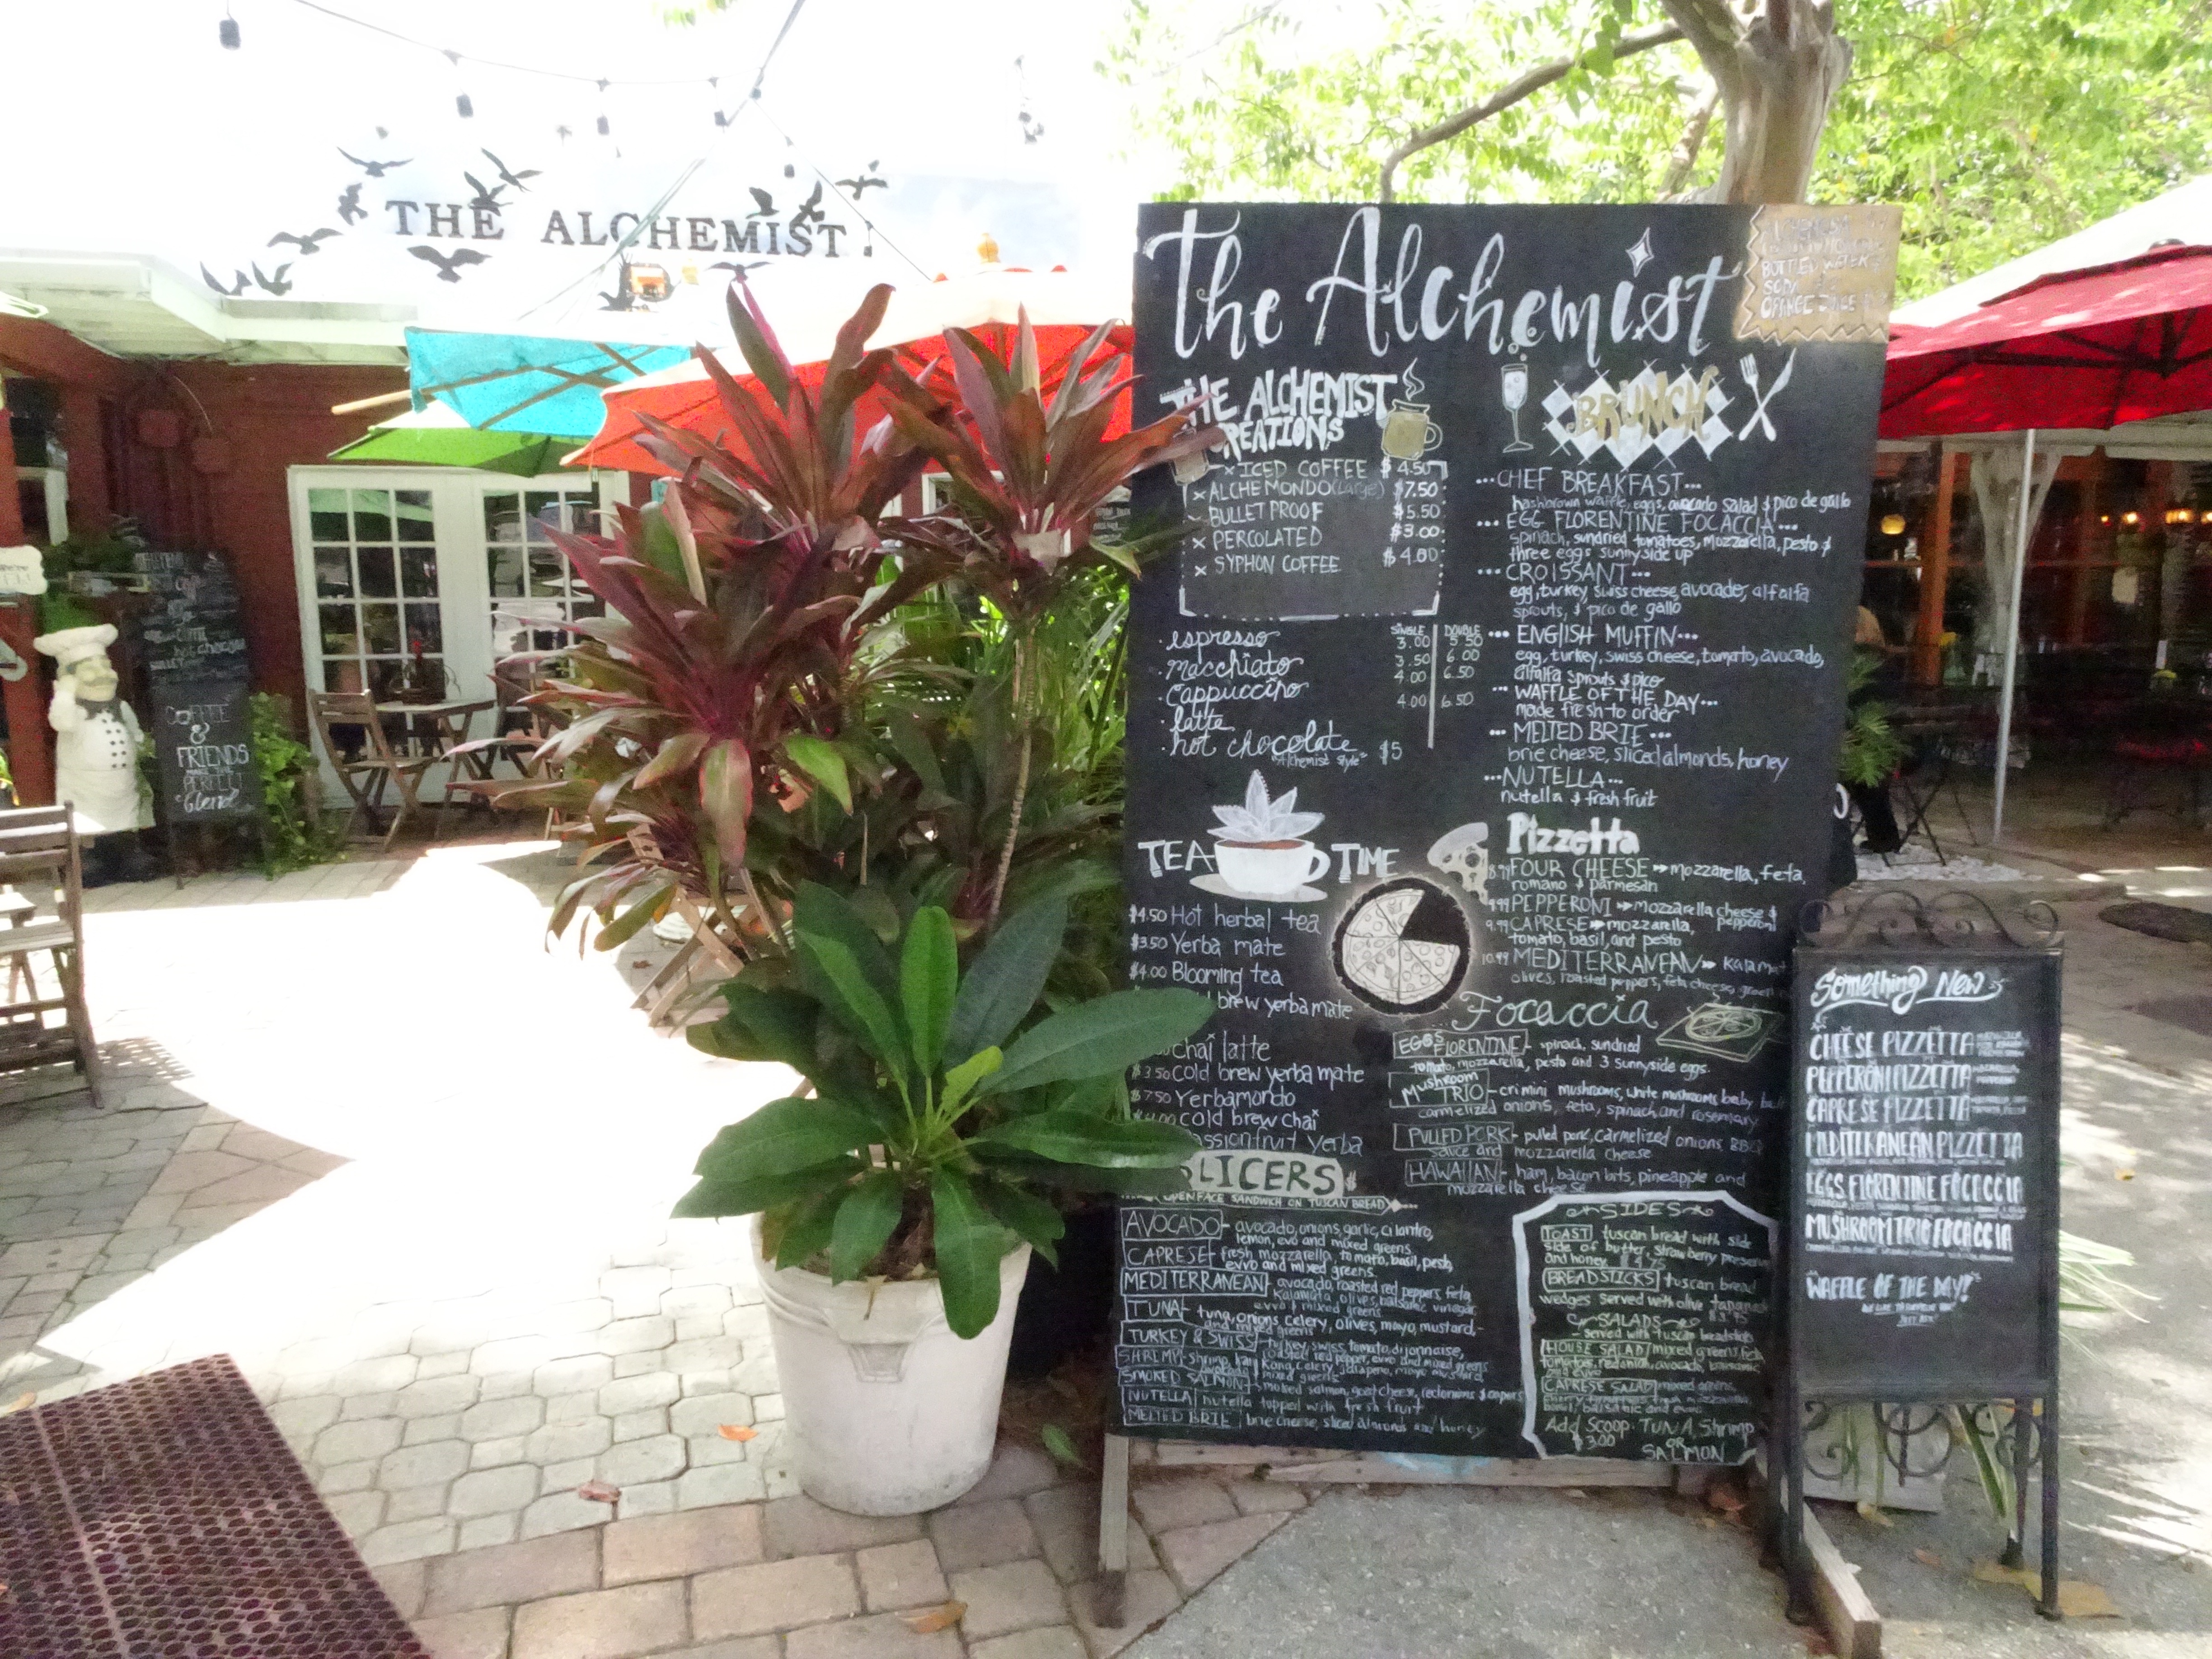 THE ALCHEMIST
COFFEE
&
FRIENDS
MAKE THE
PERFECT
blend
The Alchemist
BOTTLED WATER
SODA
ORANGE JUICE
THE ALCHEMIST
CREATIONS
x ICED COFFEE $4.50
x ALCHEMONDO (Large) $7.50
BULLET PROOF $5.50
x PERCOLATED $3.00
x SYPHON COFFEE $4.00
SINGLE DOUBLE
espresso 3.00 5.50
macchiato 3.50 6.00
cappuccino 4.00 6.50
latte 4.00 6.50
hot chocolate "Alchemist style" $5
TEA TIME
$4.50 Hot herbal tea
$3.50 Yerba mate
$4.00 Blooming tea
brew yerba mate
chai latte
$3.50 cold brew yerba mate
$7.50 Yerbamondo
cold brew chai
passionfruit yerba
SLICERS
OPEN FACE SANDWICH ON TUSCAN BREAD
AVOCADO - avocado, onions, garlic, cilantro,
lemon, evo and mixed greens
CAPRESE - fresh mozzarella, tomato, basil, pesto,
evvo and mixed greens
MEDITERRANEAN - avocado, roasted red peppers, feta,
Kalamata, olives, balsamic vinegar,
evvo & mixed greens
TUNA - tuna, onions, celery, olives, mayo, mustard,
and mixed greens
TURKEY & SWISS - turkey, swiss, tomato, dijonnaise,
roasted red pepper, evvo and mixed greens
SHRIMP - shrimp, celery, jalapeno, mayo, mustard,
avocado & mixed greens
SMOKED SALMON - smoked salmon, goat cheese, red onions & capers
NUTELLA nutella topped with fresh fruit
MELTED BRIE brie cheese, sliced almonds and honey
BRUNCH
...CHEF BREAKFAST...
hashbrown waffle, eggs, avocado salad & pico de gallo
...EGG FLORENTINE FOCACCIA...
spinach, sundried tomatoes, mozzarella, pesto &
three eggs sunnyside up
...CROISSANT...
egg, turkey, swiss cheese, avocado, alfalfa
sprouts, & pico de gallo
...ENGLISH MUFFIN...
egg, turkey, swiss cheese, tomato, avocado,
alfalfa sprouts & pico
...WAFFLE OF THE DAY...
made fresh to order
...MELTED BRIE...
brie cheese, sliced almonds, honey
...NUTELLA...
nutella & fresh fruit
Pizzetta
8.99 FOUR CHEESE mozzarella, feta,
romano & parmesan
9.99 PEPPERONI mozzarella cheese &
pepperoni
9.99 CAPRESE mozzarella,
tomato, basil, and pesto
10.99 MEDITERRANEAN Kalamat
olives, roasted peppers, feta cheese, green
Focaccia
EGGS FLORENTINE - spinach, sundried
tomato, mozzarella, pesto and 3 sunnyside eggs.
MUSHROOM TRIO - crimini mushrooms, white mushrooms, baby
carmelized onions, feta, spinach and rosemary
PULLED PORK - pulled pork, carmelized onions, BBQ
sauce and mozzarella cheese
HAWAIIAN - ham, bacon bits, pineapple and
mozzarella cheese
SIDES
TOAST tuscan bread with side
side of butter, strawberry preserve
and honey $4.75
BREADSTICKS tuscan bread
wedges served with olive tapanade
$3.95
SALADS
- served with tuscan breadsticks
HOUSE SALAD mixed greens, feta
tomatoes, red onion, avocado, balsamic
and evvo
CAPRESE SALAD mixed greens,
basil, balsamic and evvo
Add Scoop: TUNA, Shrimp
$3.00 OR
SALMON
Something New
CHEESE PIZZETTA
PEPPERONI PIZZETTA
CAPRESE PIZZETTA
MEDITERRANEAN PIZZETTA
EGGS FLORENTINE FOCACCIA
MUSHROOM TRIO FOCACCIA
WAFFLE OF THE DAY!